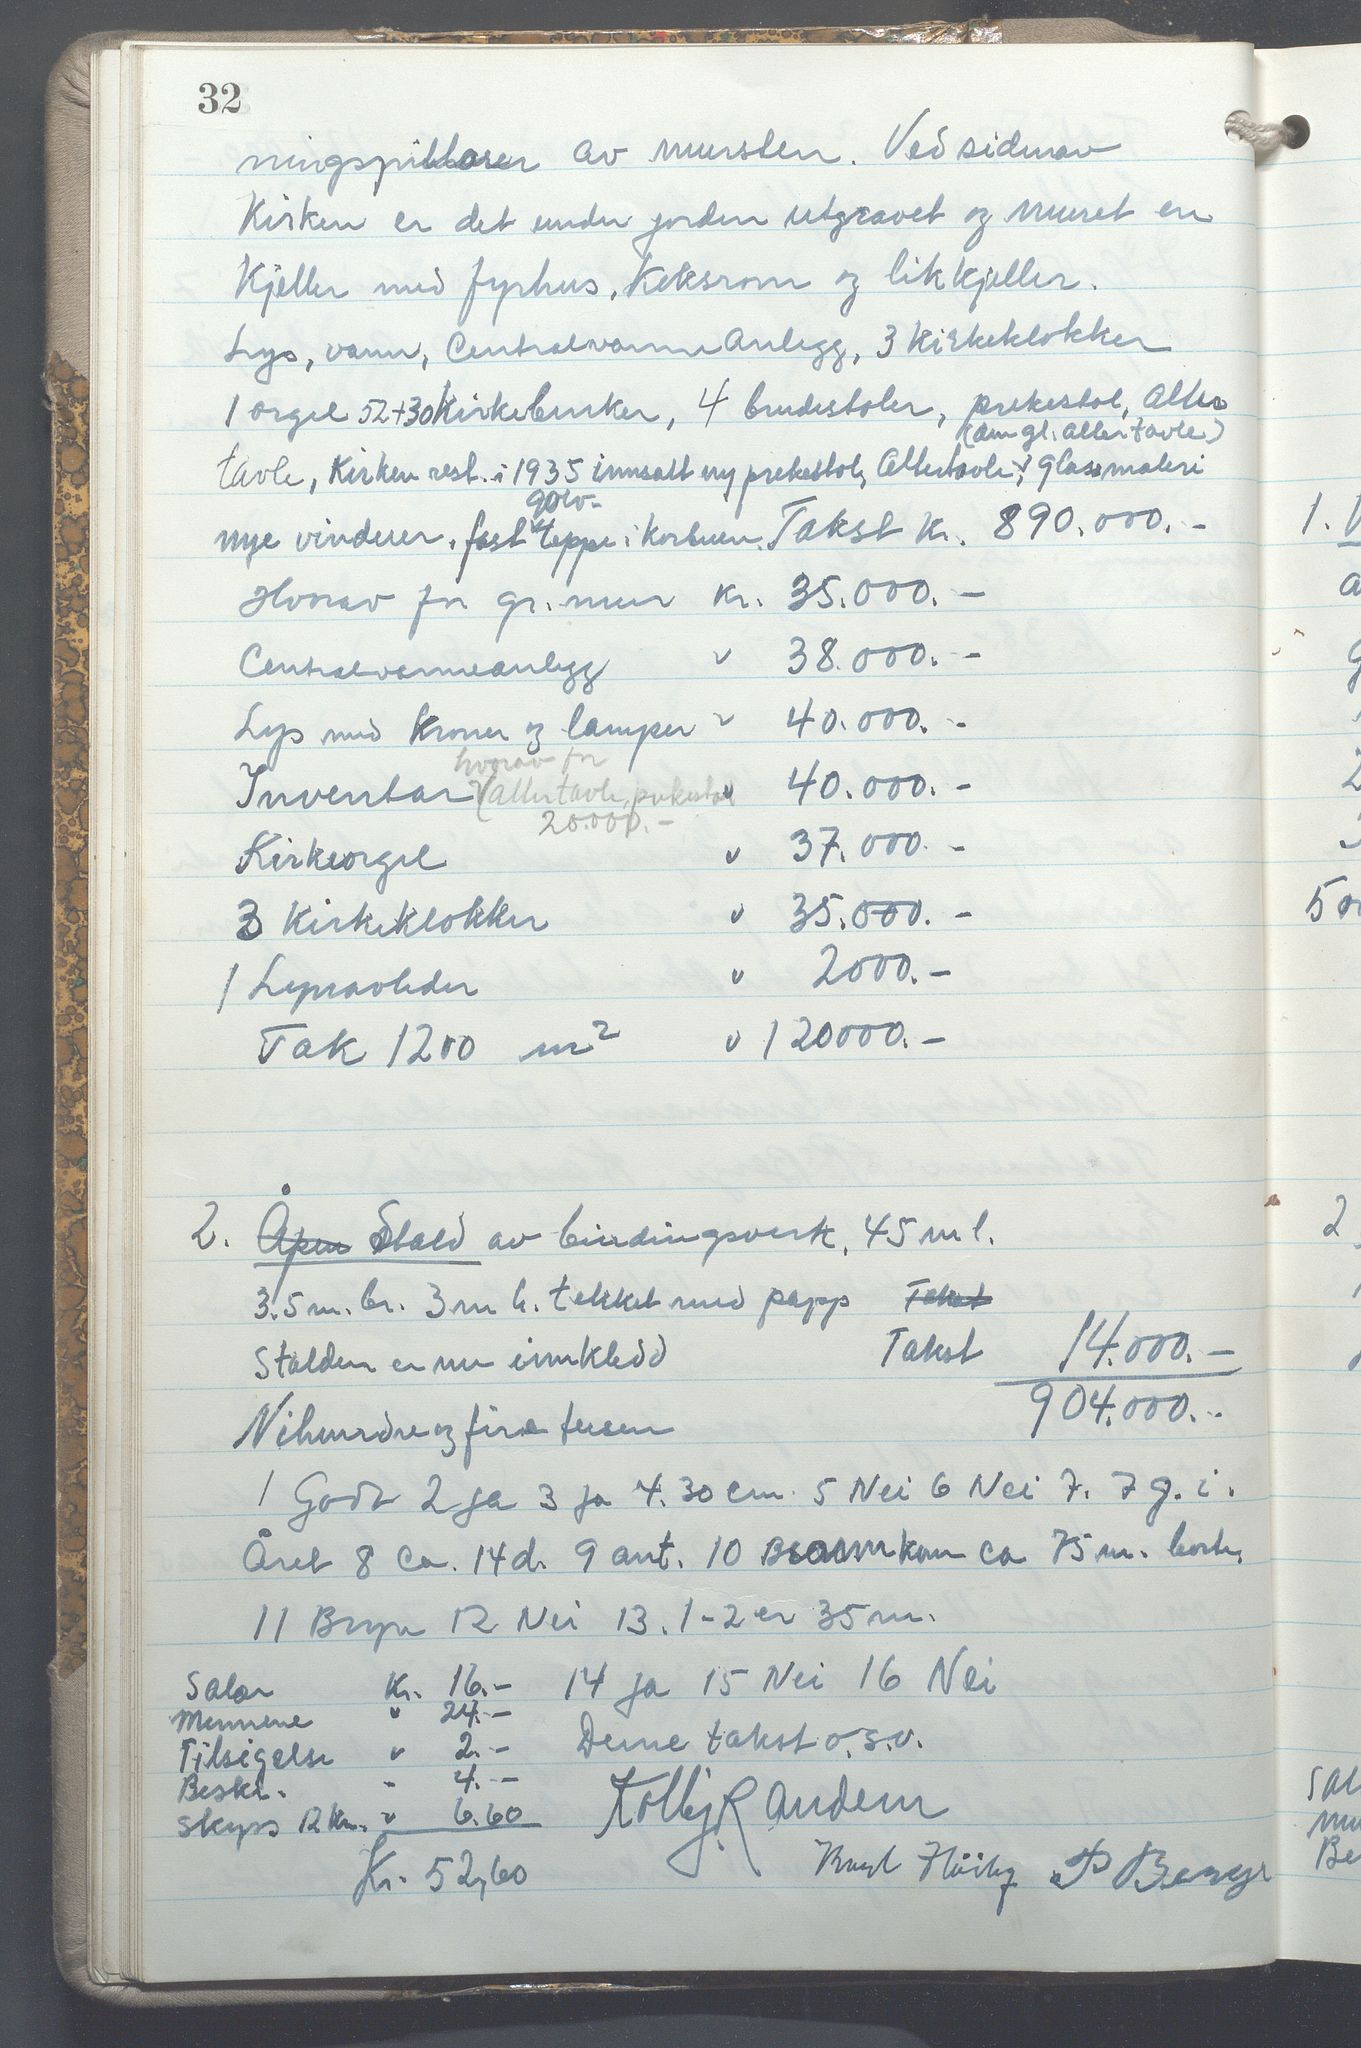 32
ningspillarer av mursten. Ved siden av
Kirken er det under jorden utgravet og muret en
Kjeller med fyrhus, Koksrom og likkjeller.
Lys, vann, Centralvarmeanlegg, 3 Kirkeklokker
1 orgel 52+30 Kirkebenker, 4 brudestoler, prekestol, Alter
(den gl. altertavle)
tavle, Kirken rest. i 1935 innsatt ny prekestol, Altertavle, glassmaleri
golv-
nye vinduer, fast teppe i Korbuen. Takst kr. 890.000.-
Hvorav for gr.mur kr. 35.000.-
Centralvarmeanlegg " 38.000.-
Lys med Kroner og lamper " 40.000.-
hvorav for
Inventar (altertavle, prekestol " 40.000.-
20.000.-
Kirkeorgel " 37.000.-
3 Kirkeklokker " 35.000.-
1 Lynavleder " 2000.-
Tak 1200 m² " 120000.-
2. Åpen Stald av bindingsverk, 45 m l.
3.5 m. br. 3 m h. tekket med papp Takst
Stalden er nu innkledd Takst 14.000.-
904.000.-
Nihundre og fire tusen
1 Godt 2 ja 3 ja 4. 30 cm. 5 Nei 6 Nei 7. 7 g. i.
Året 8 ca. 14 d. 9 ant. 10 Brannkum ca 75 m. bort,
11 Bryn 12 Nei 13. 1-2 er 35 m.
Salær Kr. 16.- 14 ja 15 Nei 16 Nei
Mennene " 24.-
Tilsigelse " 2.- Denne takst o.s.v.
Beskr. - 4.-
Skyss 12 Km. " 6.60 Kolbj R andem
Kr. 52,60 Høiby P Berge